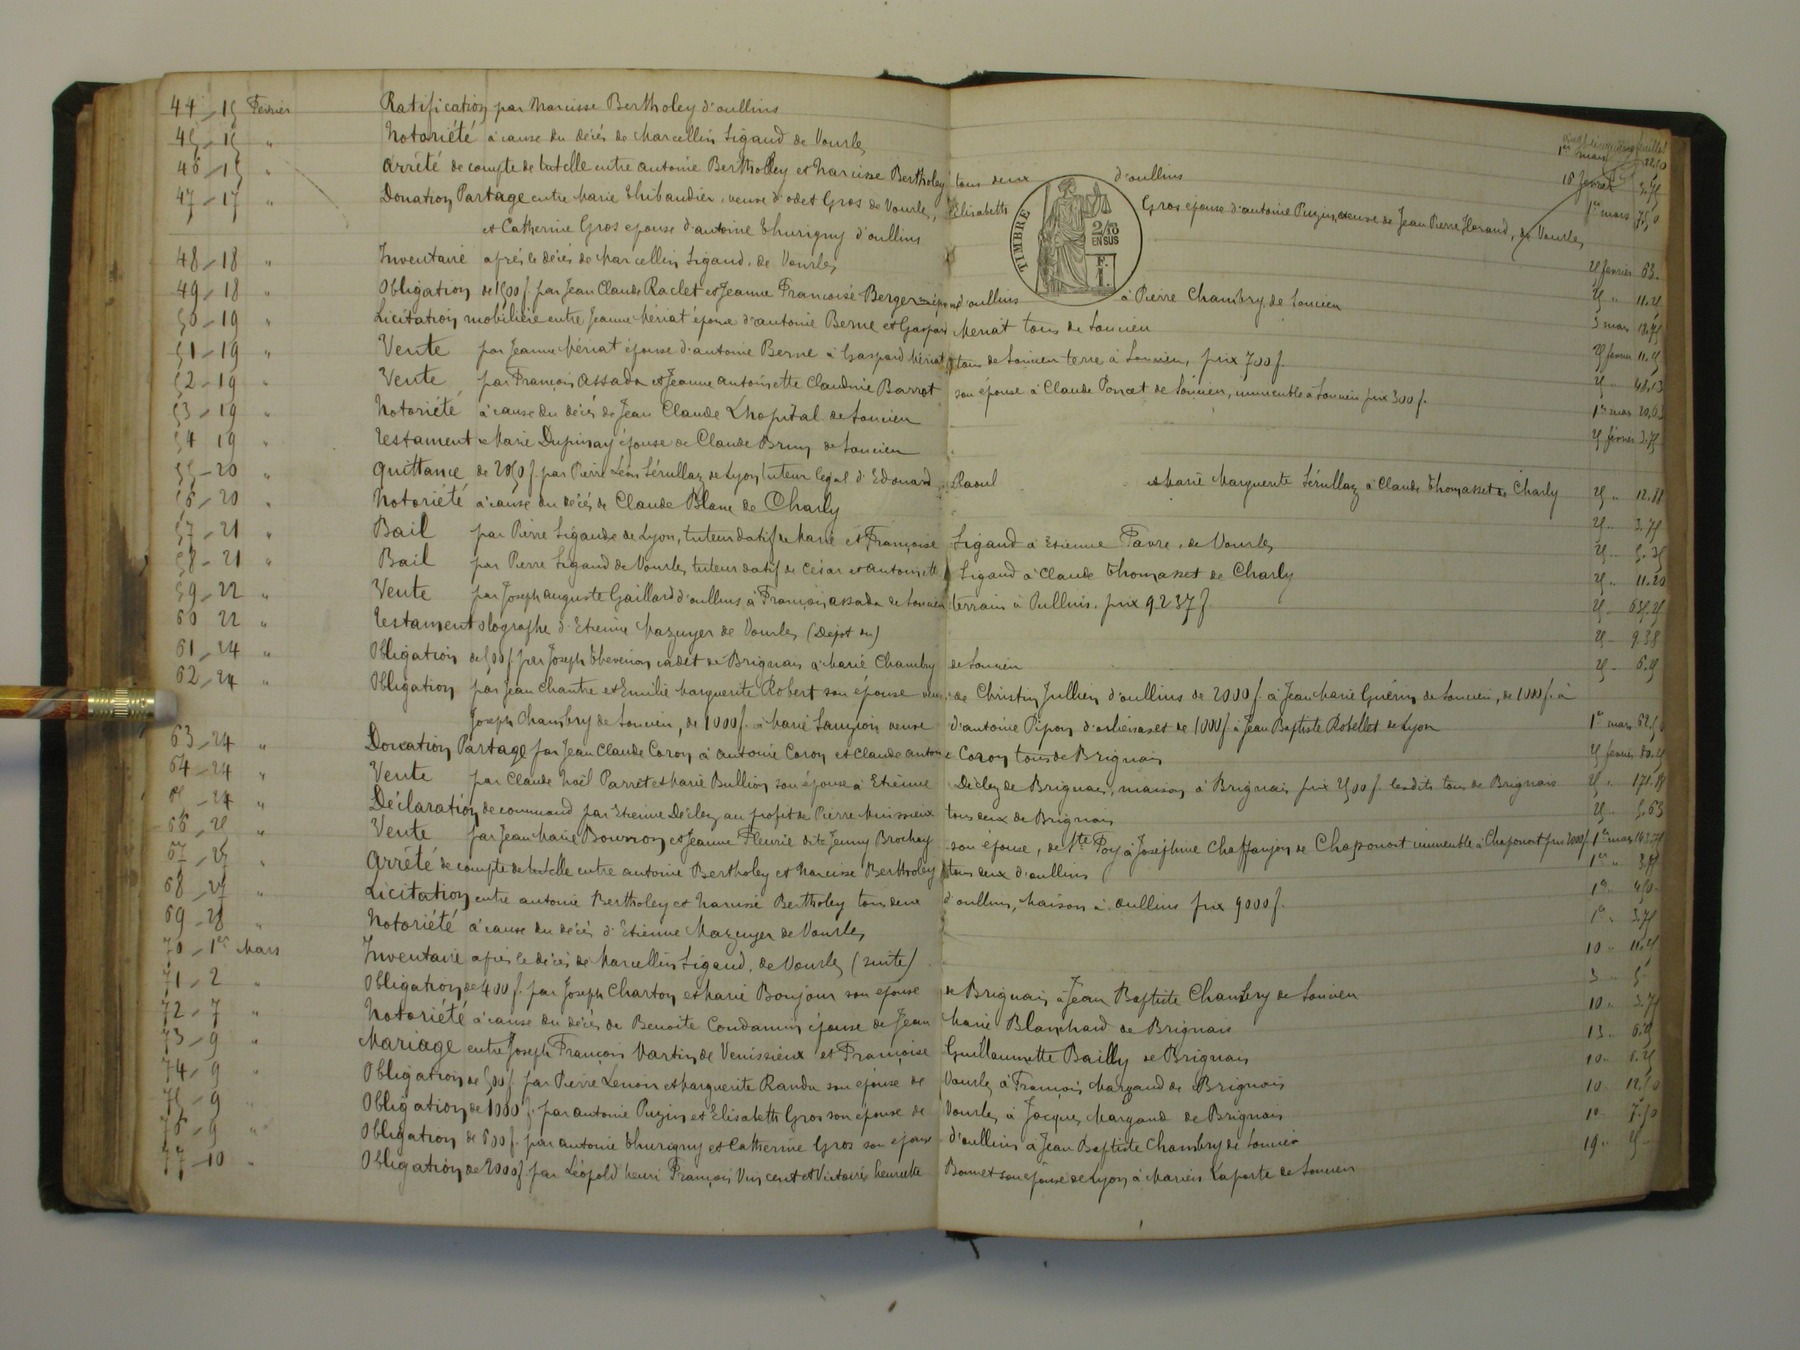 vingt cinquième feuillet
44 - 15 Février Ratification par Narcisse Bertholey d'oullins 1er mars
45 - 15 " Notoriété à cause du décès de Marcellin Ligaud de Vourles 18 février 3.75
46 - 15 " Arrêté de compte de tutelle entre antoine Bertholey et Narcisse Bertholey tous deux d'oullins 1er mars 7.50
47 - 17 " Donation Partage entre Marie Thibaudier, veuve d'odet Gros de Vourles, Elisabeth Gros epouse d'antoine Puzin, veuve de Jean Pierre Florand, de Vourles,
et Catherine Gros epouse d'antoine Thurigny d'oullins
TIMBRE 2/10 EN SUS F. 1.
48 - 18 " Inventaire après le décès de Marcellin Ligaud, de Vourles 25 février 63.
49 - 18 " Obligation de 1500 f. par Jean Claude Raclet et Jeanne Francoise Berger d'oullins à Pierre Chambry de Soucieu 25 " 11.25
50 - 19 " Licitation mobilière entre Jeanne Mériat épouse d'antoine Berne et Gaspard Meriat tous de Soucieu 3 mars 13.75
51 - 19 " Vente par Jeanne Mériat épouse d'antoine Berne à Gaspard Mériat tous de Soucieu terre à Soucieu, prix 700 f. 25 février 11.25
52 - 19 " Vente par François Assada et Jeanne antoinette Claudine Barrot son épouse à Claude Poncet de Soucieu, immeuble à Soucieu prix 300 f. 25 " 48.13
53 - 19 " Notoriété à cause du décès de Jean Claude Lhopital de Soucieu 1er mars 20.63
54 19 " Testament Marie Dupinay épouse de Claude Brun de Soucieu 25 février 3.75
55 - 20 " Quittance de 2050 f. par Pierre Léon Sérullaz de Lyon tuteur legal d'Edouard Raoul et Marie Marguerite Sérullaz à Claude Thomasset de Charly 25 " 12.88
56 - 20 " Notoriété à cause du décès de Claude Blanc de Charly 25 " 3.75
57 - 21 " Bail par Pierre Ligaud de Lyon, tuteur datif de Marie et Françoise Ligaud à Etienne Favre, de Vourles 25 " 5.35
58 - 21 " Bail par Pierre Ligaud de Vourles tuteur datif de César et antoinette Ligaud à Claude Thomasset de Charly 25 " 11.20
59 - 22 " Vente par Joseph auguste Gaillard d'oullins à François assada de Soucieu terrain à Oullins. prix 9237 f. 25 - 635.25
60 22 " Testament olographe d'Etienne Mazuyer de Vourles (Dépôt du) 25 - 9.38
61 - 24 " Obligation de 500 f. par Joseph Thevenon cadet de Brignais à Marie Chambry de Soucieu 25 - 6.25
62 - 24 " Obligation par Jean Chantre et Emilie Marguerite Robert son épouse veuve de Christin Jullien d'oullins de 2000 f. à Jean Marie Guérin de Soucieu, de 1000 f. à
Joseph Chambry de Soucieu, de 1000 f. à Marie veuve d'antoine Pipon d'orliénas et de 1000 f. à Jean Baptiste Rosellet de Lyon 1er mars 62.50
63 - 24 " Donation Partage par Jean Claude Coron à antoine Coron et Claude antoine Coron tous de Brignais 25 février 80.25
64 - 24 " Vente par Claude Noël Parret et Marie Bullion son épouse à Etienne Décley de Brignais, maison à Brignais prix 2500 f. lesdits tous de Brignais 25 " 171.88
65 - 24 " Déclaration de command par Etienne Décley au profit de Pierre Muissieux tous deux de Brignais 25 - 5.63
66 - 25 " Vente par Jean Marie Bourron et Jeanne Fleurie dite Jenny Brochay son épouse, de Ste Foy à Joséphine Chaffanjon de Chaponost immeuble à Chaponost prix 2000 f. 1er mars 143.75
67 - 25 " Arrêté de compte de tutelle entre antoine Bertholey et Narcisse Bertholey tous deux d'oullins 1er " 3.75
68 - 27 " Licitation entre antoine Bertholey et Narcisse Bertholey tous deux d'oullins, Maison à oullins prix 9000 f. 1er " 450 -
69 - 28 " Notoriété à cause du décès d'Etienne Mazuyer de Vourles 1er " 3.75
70 - 1er Mars Inventaire après le décès de Marcellin Ligaud, de Vourles (suite) 10 " 11.25
71 - 2 " Obligation de 400 f. par Joseph Charton et Marie Bonjour son epouse de Brignais à Jean Baptiste Chambry de Soucieu 3 - 5
72 - 7 " Notoriété à cause du décès de Benoite Condamin épouse de Jean Marie Blanchard de Brignais 10 " 3.75
73 - 9 " Mariage entre Joseph François Martin de Venissieux et Françoise Guillaumette Bailly de Brignais 13 "
74 - 9 " Obligation de 500 f. par Pierre Lenoir et Marguerite Randu son épouse de Vourles à François Margand de Brignais 10 " 6.25
75 - 9 " Obligation de 1000 f. par antoine Puzin et Elisabeth Gros son épouse de Vourles à Jacques Margand de Brignais 10 " 12.50
76 - 9 " Obligation de 600 f. par antoine Thurigny et Catherine Gros son epouse d'oullins à Jean Baptiste Chambry de Soucieu 10 7.50
77 - 10 " Obligation de 2000 f. par Léopold henri François Vincent et Victoire henriette Bonnet son épouse de Lyon à Marien Laporte de Soucieu 19 " 25 -